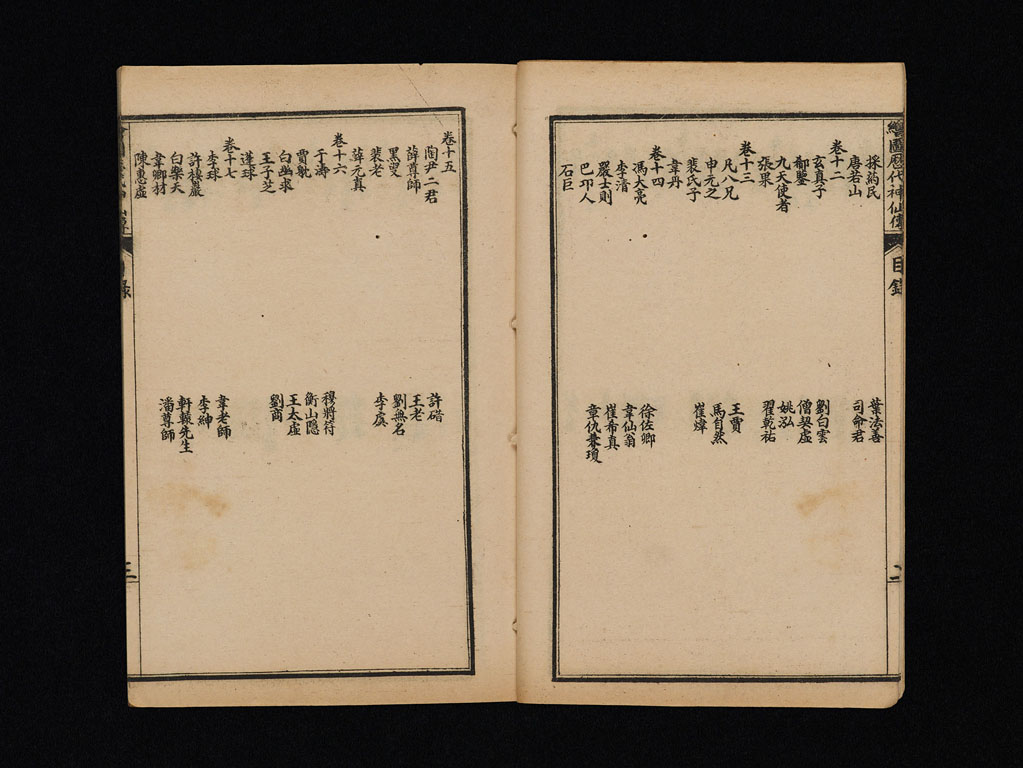 繪圖歷代神仙傳 目錄 二
採葯民 葉法善
唐若山 司命君
卷十二
玄真子 劉白雲
郗鑒 僧契虛
九天使者 姚泓
張果 翟乾祐
卷十三
凡八兄 王賈
申元之 馬自然
裴氏子 崔煒
韋丹
卷十四
馮大亮 徐佐卿
李清 韋仙翁
嚴士則 崔希真
巴邛人 章仇兼瓊
石巨
卷十五
陶尹二君 許碏
薛尊師 王老
黑叟 劉無名
裴老 李虞
薛元真
卷十六
于濤 穆將符
賈躭 衡山隱
白幽求 王太虛
王子芝 劉商
蓬球
卷十七
李球 韋老師
許棲巖 李紳
白樂天 軒轅先生
韋卿材 潘尊師
陳惠虛
目錄 三